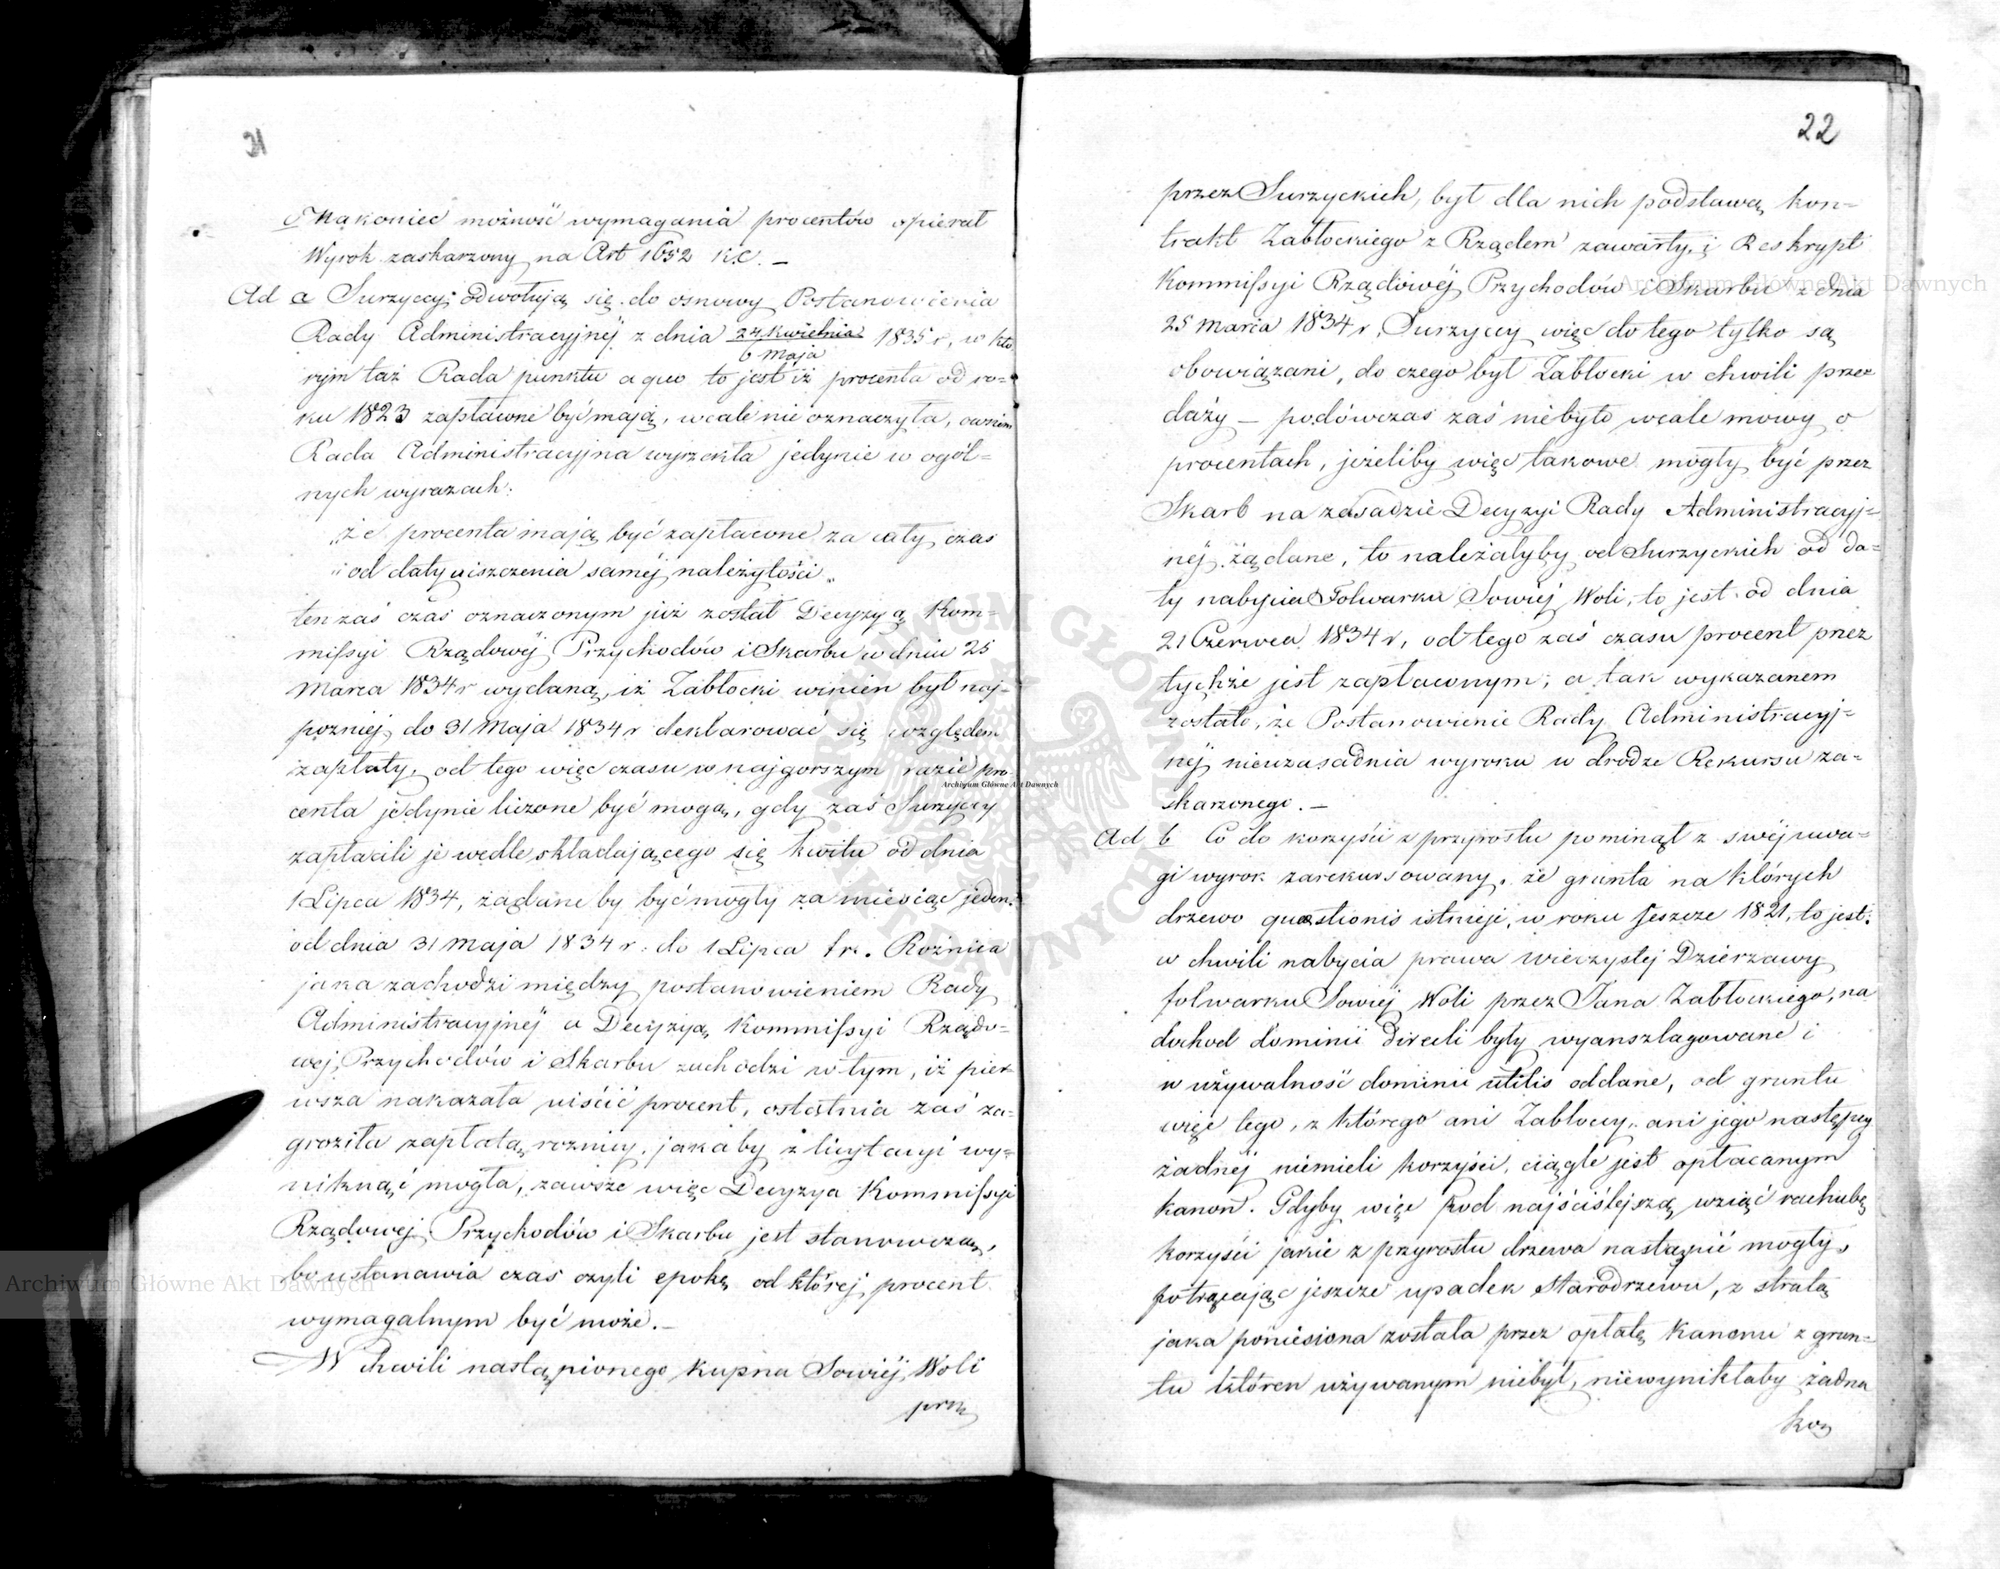 21
c Nakoniec możność wymagania procentów opierał
Wyrok zaskarzony na Art 1652 K.C. –
Ad a Surzyccy odwołują się do osnowy Postanowienia
Rady Administracyjnej z dnia 24 Kwietnia / 6 Maja 1835 r, w któ
rym taż Rada punktu a quo to jest iż procenta od ro=
ku 1823 zapławne być mają, wcale nie oznaczyła, owszem
Rada Administracyjna wyrzekła jedynie w ogól=
nych wyrazach:
„że procenta mają być zapłacone za cały czas
„od daty uiszczenia saméj należytości„
ten zaś czas oznaczonym już został Decyzyą Kom=
missyi Rządowéj Przychodów i Skarbu w dniu 25
Marca 1834 r wydaną, iż Zabłocki winien był naj=
pozniej do 31 Maja 1834 r deklarować się względem
zapłaty, od tego więc czasu w najgorszym razie pro
centa jedynie liczone być mogą, gdy zaś Surzyccy
zapłacili je wedle składającego się kwitu od dnia
1 Lipca 1834, żądane by być mogły za miesiąc jeden:
od dnia 31 Maja 1834 r. do 1 Lipca t.r. Różnica
jaka zachodzi między postanowieniem Rady
Administracyjnéj a Decyzyą Kommissyi Rządo=
wej Przychodów i Skarbu zachodzi w tym, iż pier
wsza nakazała uiścić procent, ostatnia zaś za=
groziła zapłatą roznicy, jakaby z licytacyi wy=
niknąć mogła, zawsze więc Decyzya Kommissyi
Rządowej Przychodów i Skarbu jest stanowczą,
bo ustanawia czas czyli epokę od której procent
wymagalnym być może. –
W chwili nastąpionego kupna Sowiéj Woli
prze
22
przez Surzyckich, był dla nich podstawą kon=
trakt Zabłockiego z Rządem zawarty, i Reskrypt
Kommissyi Rządowéj Przychodów i Skarbu z dnia
25 Marca 1834 r, Surzyccy więc do tego tylko są
obowiązani, do czego był Zabłocki w chwili prze
daży – podówczas zaś niebyło wcale mowy o
procentach, jeżeliby więc takowe mogły być przez
Skarb na zasadzie Decyzyi Rady Administracyj=
néj żądane, to należałyby od Surzyckich od da=
ty nabycia Folwarku Sowiéj Woli, to jest od dnia
21 Czerwca 1834 r, od tego zaś czasu procent przez
tychże jest zapławnym, a tak wykazanem
zostało, że Postanowienie Rady Administracyj=
néj nieuzasadnia wyroku w drodze Rekursu za=
skarzonego. –
Ad b Co do korzyści z przyrostu pominął z swéj uwa=
gi wyrok zarekursowany, że grunta na których
drzewo quaestionis istnieje, w roku jeszcze 1821, to jest:
w chwili nabycia prawa wieczystej Dzierzawy
folwarku Sowiej Woli przez Jana Zabłockiego, na
dochod dominii directi były wyanszlagowane i
w używalność dominii utilis oddane, od gruntu
więc tego, z którego ani Zabłoccy, ani jego następcy
żadnéj niemieli korzyści, ciągle jest opłacanym
kanon. Gdyby więc pod najściślejszą wziąć rachubę
korzyści jakie z przyrostu drzewa nastąpić mogły,
potrącając jeszcze upadek Starodrzewu, z stratą
jaka poniesiona została przez opłatę Kanonu z grun=
tu któren używanym niebył, niewynikłaby żadna
kor
Archiwum Główne Akt Dawnych
Archiwum Główne Akt Dawnych
Archiwum Główne Akt Dawnych
ARCHIWUM GŁÓWNE AKT DAWNYCH